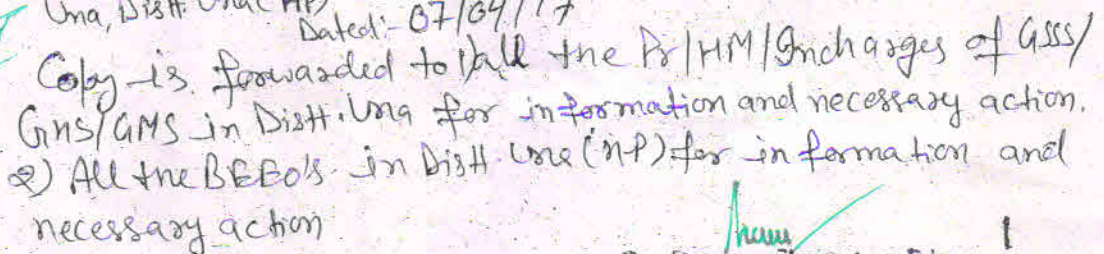 Una, Distt. Una (HP)
Dated:- 07/04/17
Copy is forwarded to 1) all the Pr/HM/Incharges of GSSS/
GHS/GMS in Distt. Una for information and necessary action.
2) All the BEEO's in Distt. Una (HP) for information and
necessary action